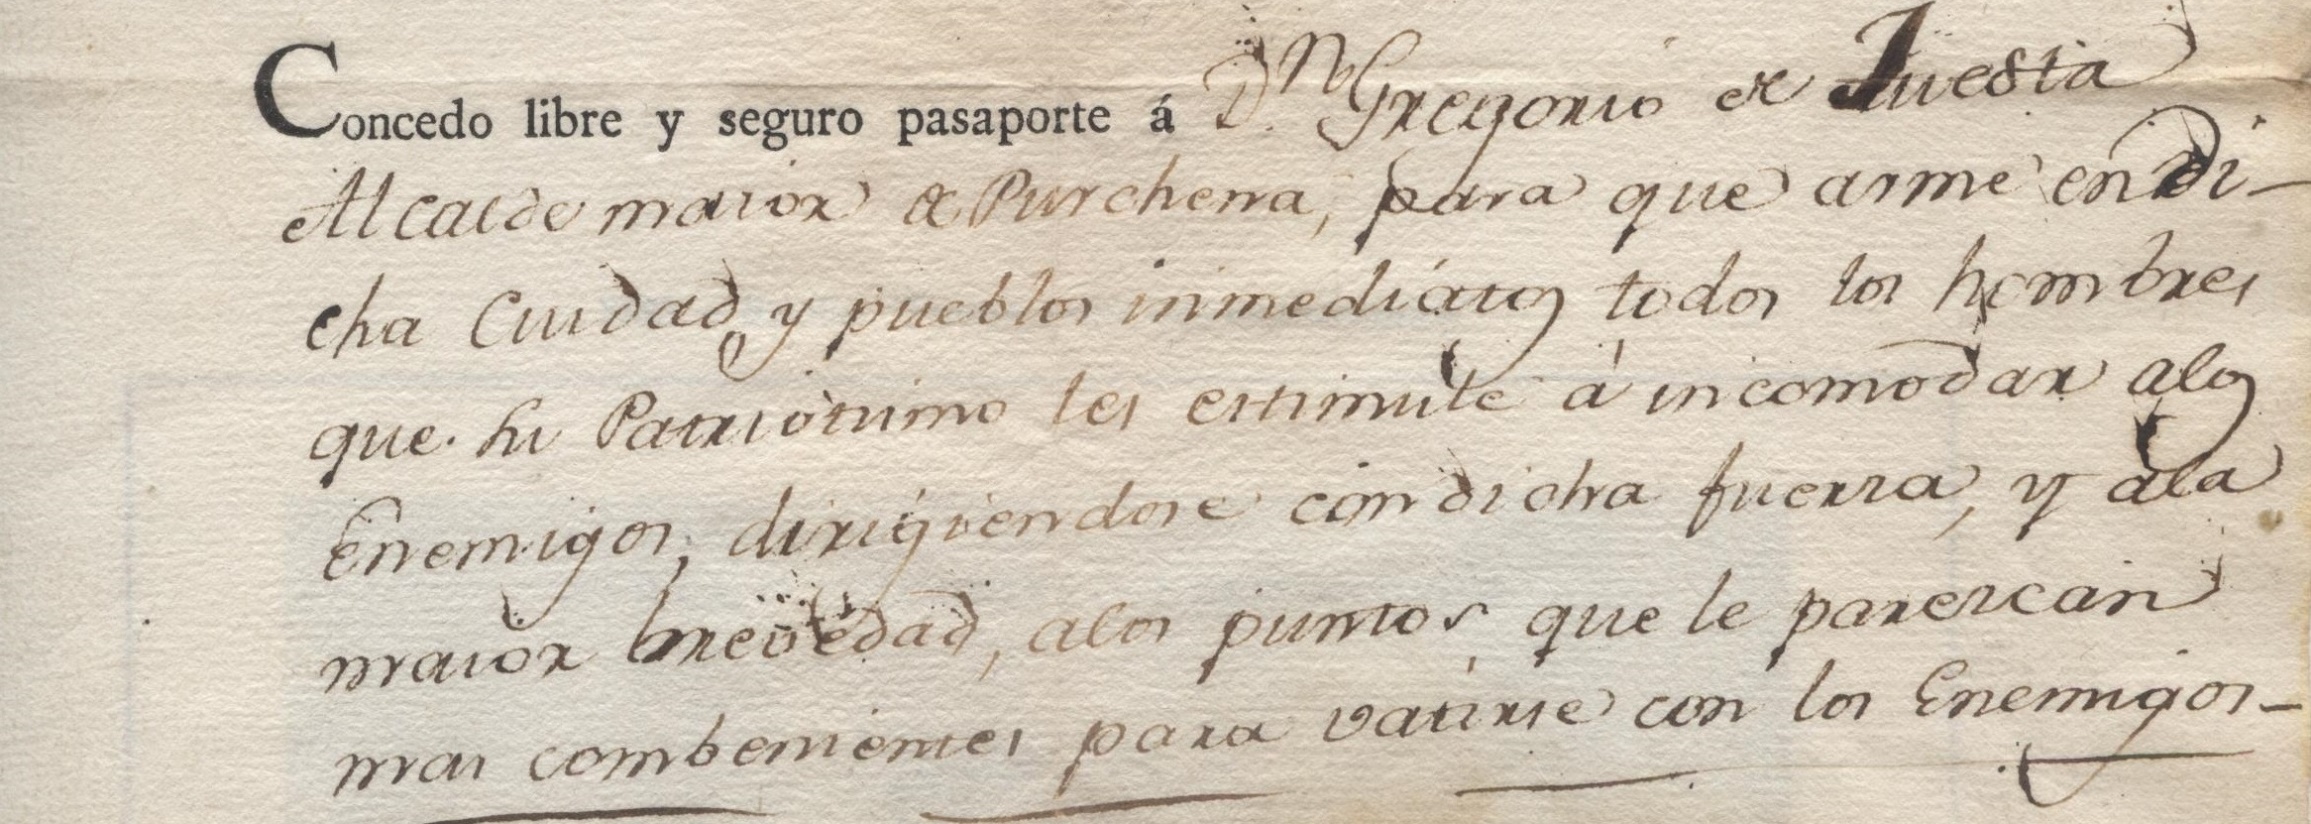 Concedo libre y seguro pasaporte á Dn Gregorio de Iuesta
Alcalde maior de Purchena, para que arme en di-
cha Ciudad, y pueblos inmediátos todos los hombres
que su Patriótismo les estimule á incomodar alos
Enemigos, dirigiendose con dicha fuerza, y ala
maior brevedad, alos puntos que le parezcan
mas combenientes para vatirse con los Enemigos-